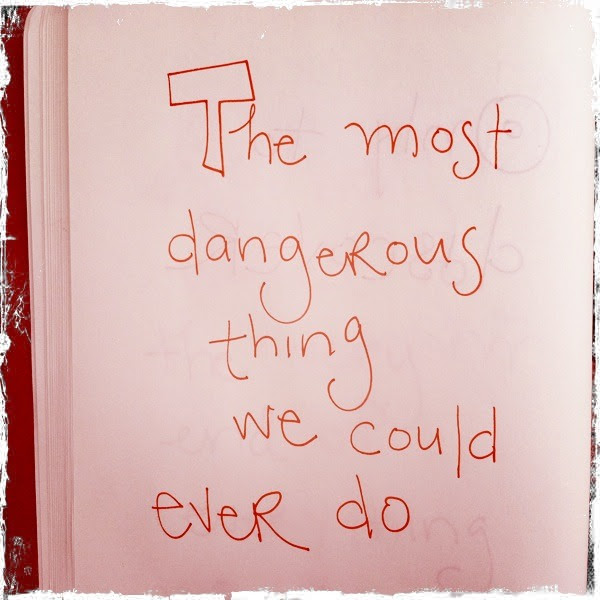 The most
dangerous
thing
we could
ever do